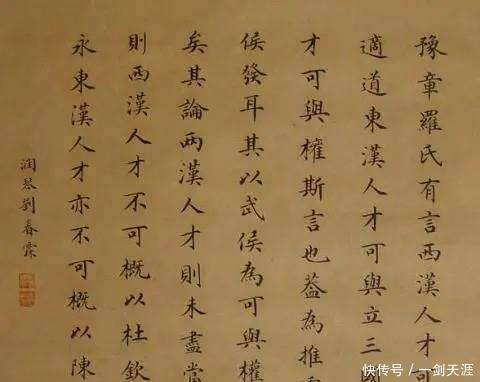 豫章羅氏有言西漢人才可
適道東漢人才可與立三
才可與權斯言也葢為推
侯發耳其以武侯為可與權
矣其論兩漢人才則未盡當
則西漢人才不可概以杜欽
永東漢人才亦不可概以陳
潤琴劉春霖
快传号 / 一剑天涯